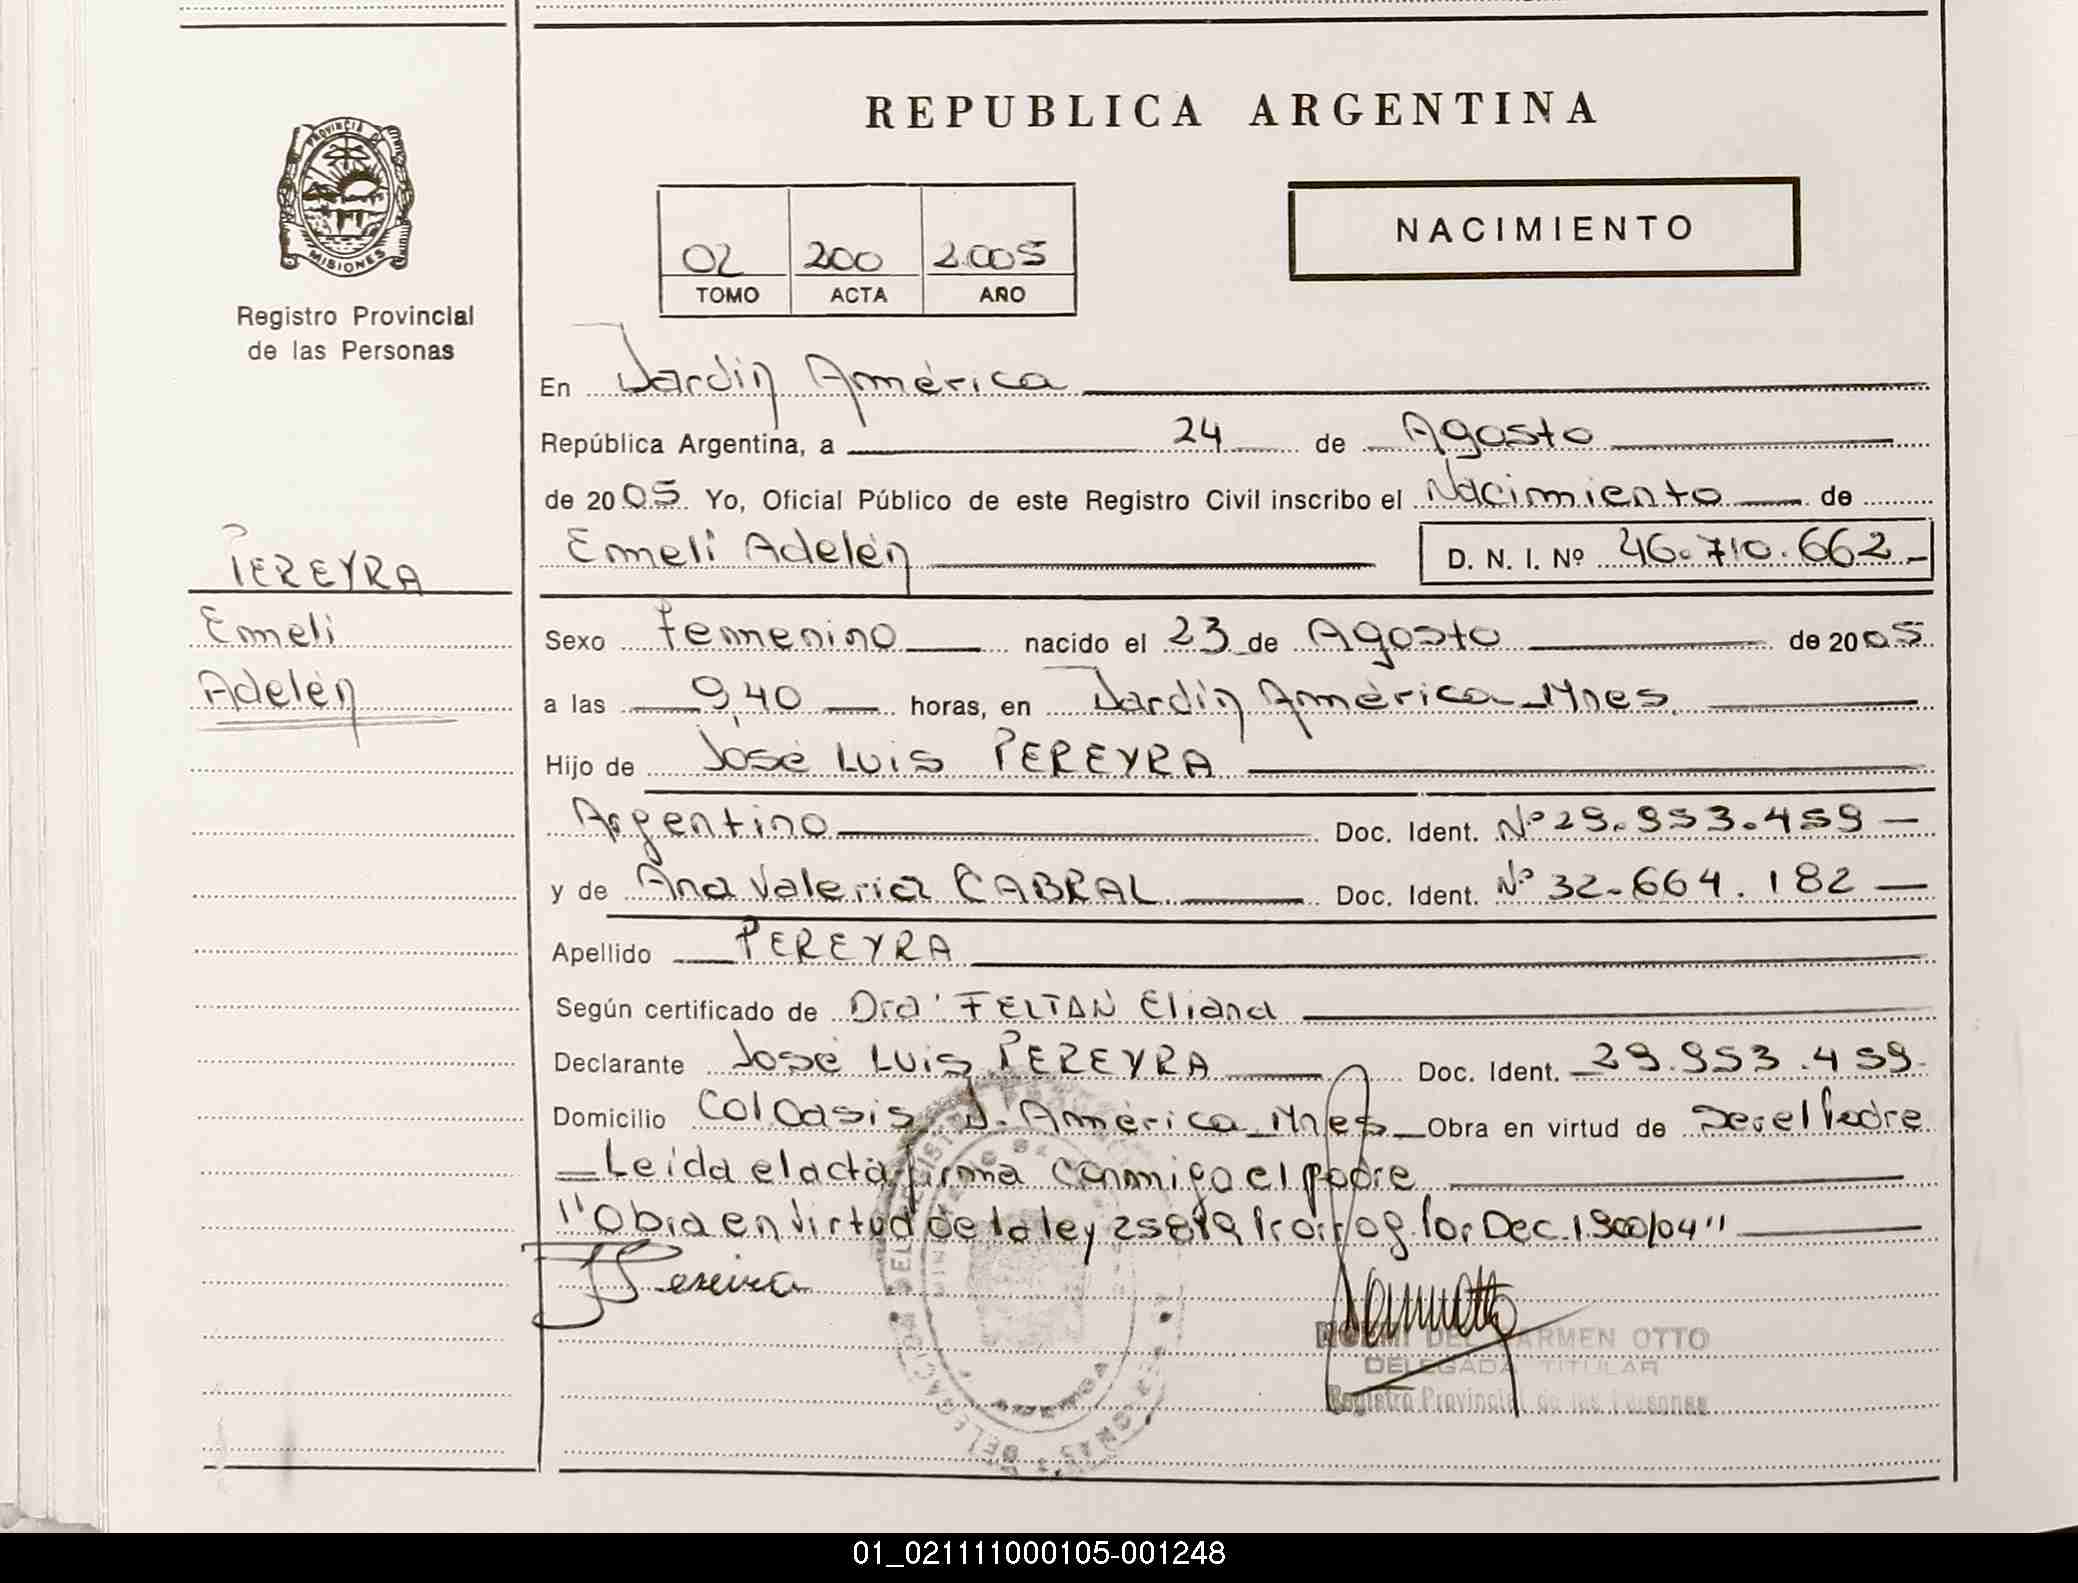 REPUBLICA ARGENTINA
PROVINCIA DE
MISIONES
Registro Provincial
de las Personas
NACIMIENTO
02 200 2005
TOMO ACTA AÑO
En Jardín América
República Argentina, a 24 de Agosto
de 2005. Yo, Oficial Público de este Registro Civil inscribo el Nacimiento de
Emeli Adelén D. N. I. Nº 46.710.662.-
PEREYRA
Emeli
Adelén
Sexo Femenino nacido el 23 de Agosto de 2005.
a las 9,40 horas, en Jardín América - Mnes.
Hijo de José Luis PEREYRA
Argentino Doc. Ident. Nº 29.953.459 -
y de Ana Valeria CABRAL Doc. Ident. Nº 32.664.182 -
Apellido PEREYRA
Según certificado de Dra. FELTAN Eliana
Declarante José Luis PEREYRA Doc. Ident. 29.953.459.
Domicilio Col Oasis J. América - Mnes - Obra en virtud de Ser el Padre
- Leída el acta firma conmigo el padre
"Obra en Virtud de la ley 25819 Prorrog. Por Dec. 1900/04"
JPereira
NOEMI DEL CARMEN OTTO
DELEGADA TITULAR
Registro Provincial de las Personas
01_021111000105-001248